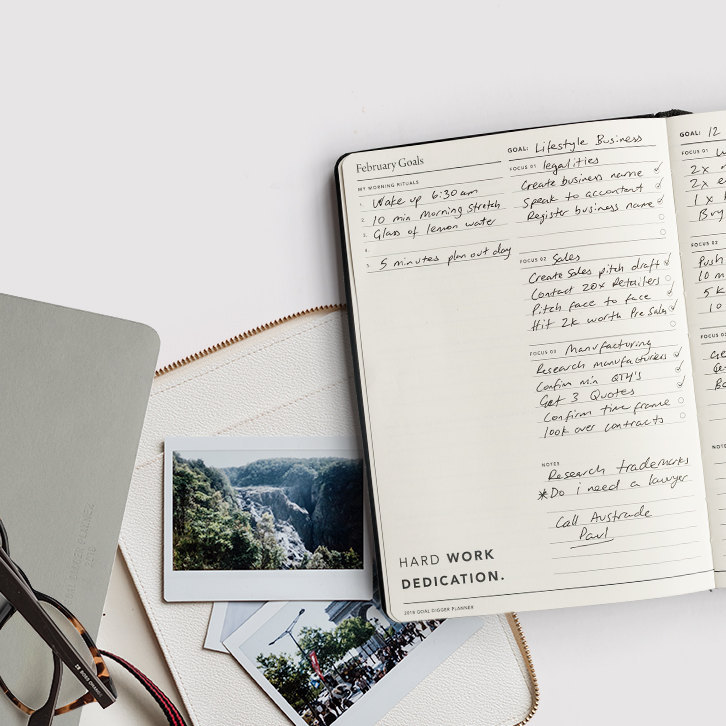 February Goals
MY MORNING RITUALS
1. Wake up 6:30am
2. 10 min morning stretch
3. Glass of lemon water
4.
5. 5 minutes plan out day
HARD WORK
DEDICATION.
2018 GOAL DIGGER PLANNER
GOAL: Lifestyle Business
FOCUS 01 legalities
Create business name
Speak to accountant
Register business name
FOCUS 02 Sales
Create Sales pitch draft
Contact 20x Retailers
Pitch face to face
Hit 2K worth Pre Sales
FOCUS 03 Manufacturing
Research manufacturers
Confirm min QTY'S
Get 3 Quotes
Confirm time frame
look over contracts
NOTES
Research trademarks
*Do i need a lawyer
Call Austrade
Paul
GOAL: 12
FOCUS 01
2x
2x
1x
FOCUS 02
Push
10 m
5K
10
FOCUS 03
NOT
GOAL DIGGER PLANNER
2018